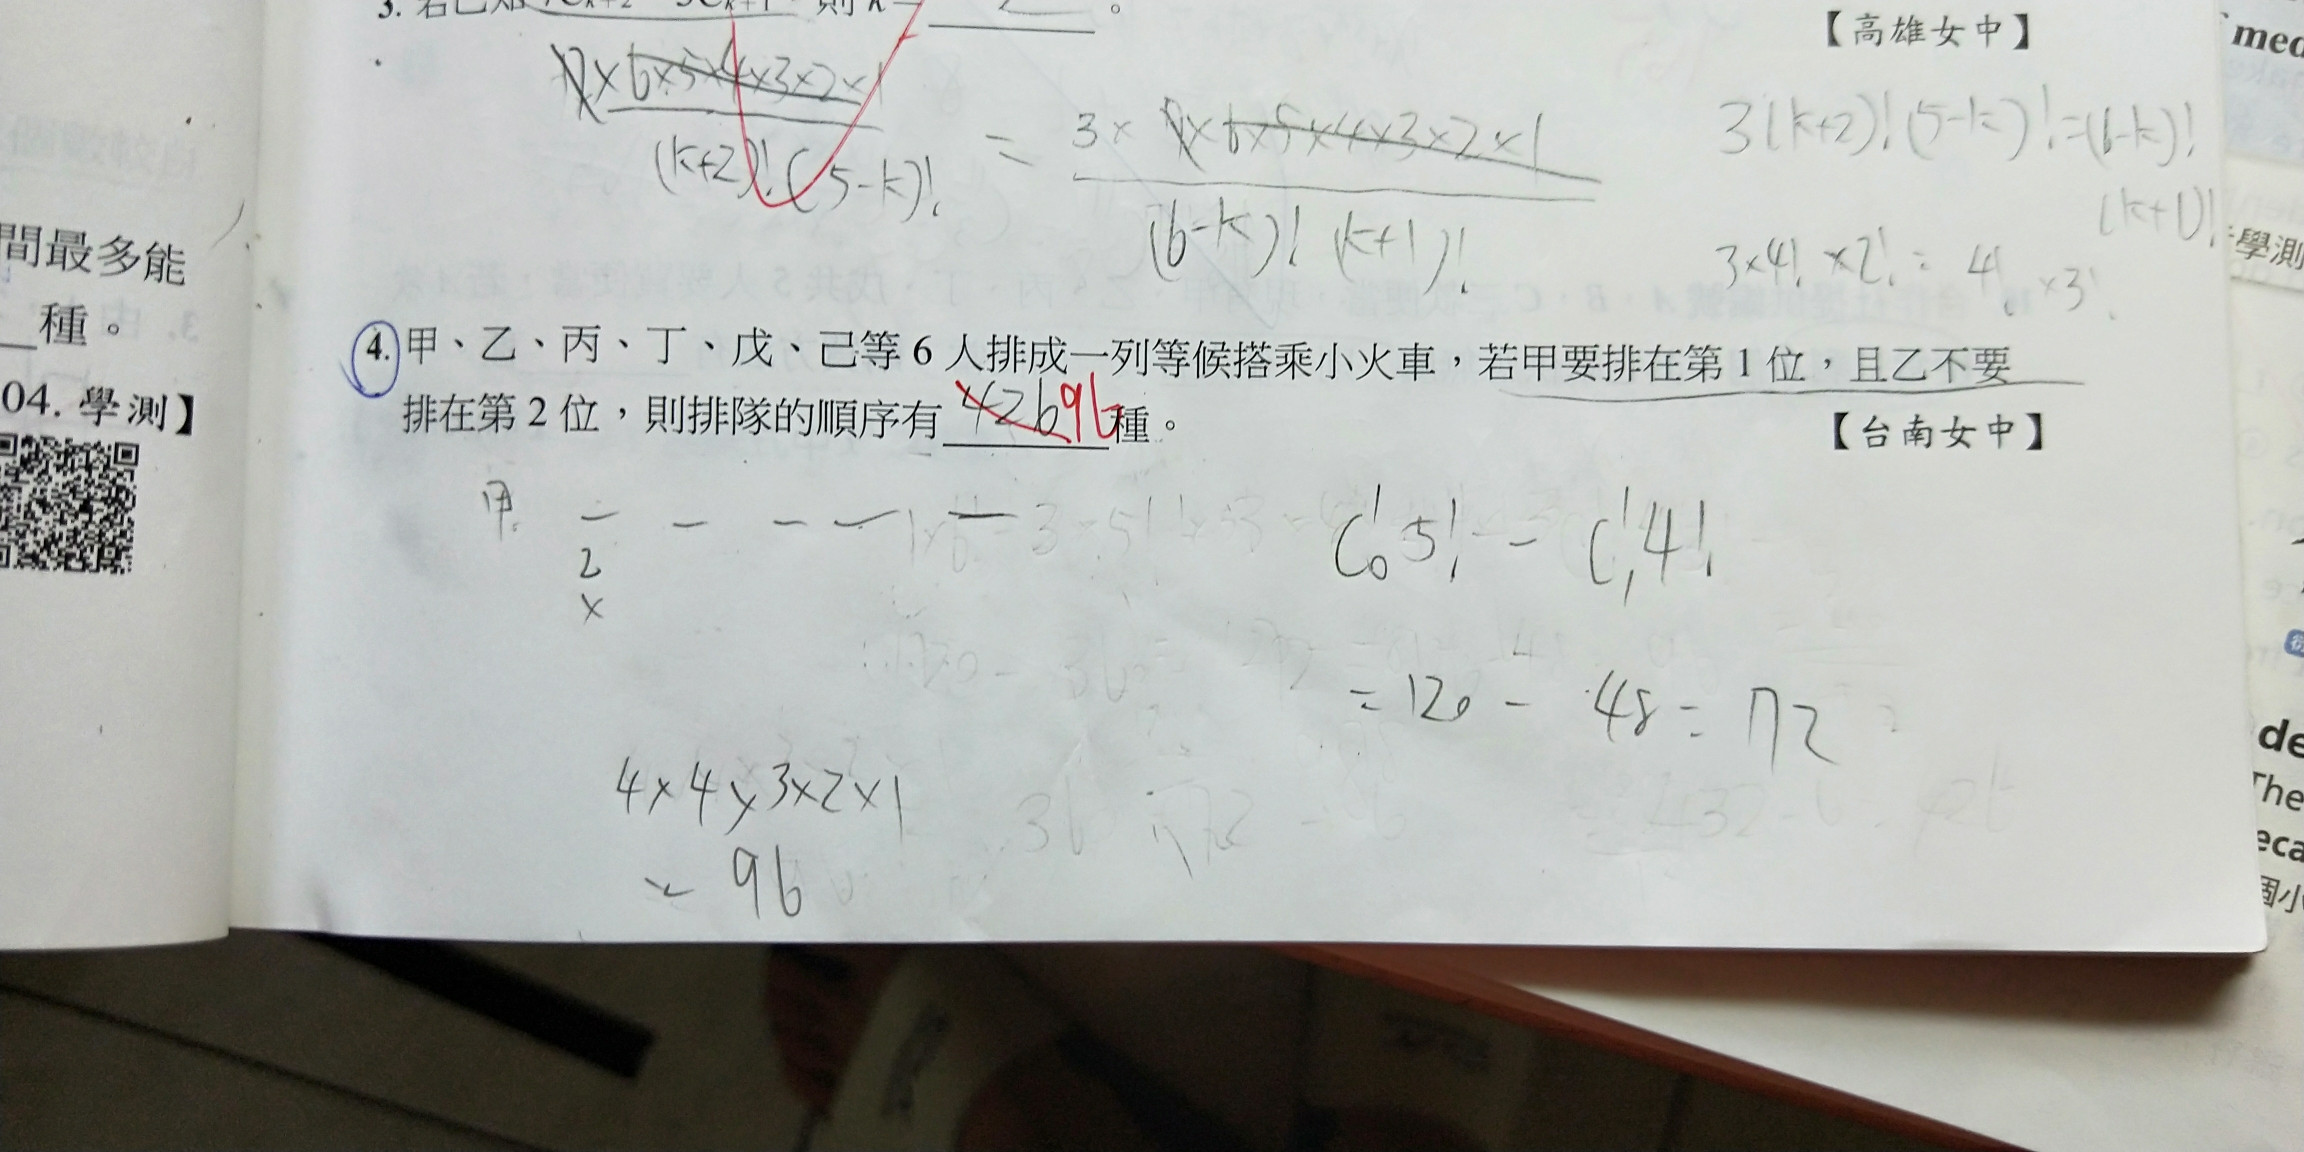 【高雄女中】
7×6×5×4×3×2×1
(k+2)!(5-k)!
=
3×7×6×5×4×3×2×1
(6-k)!(k+1)!
3(k+2)!(5-k)!=(6-k)!
(k+1)!
3×4!×2!=4!×3!
4.甲、乙、丙、丁、戊、己等6人排成一列等候搭乘小火車,若甲要排在第1位,且乙不要
排在第2位,則排隊的順序有 426 96 種。
【台南女中】
甲
2
×
C¹₀5!-C¹₁4!
=120-48=72
4×4×3×2×1
=96
間最多能
種。
04.學測】
med
學測
de
The
eca
個小